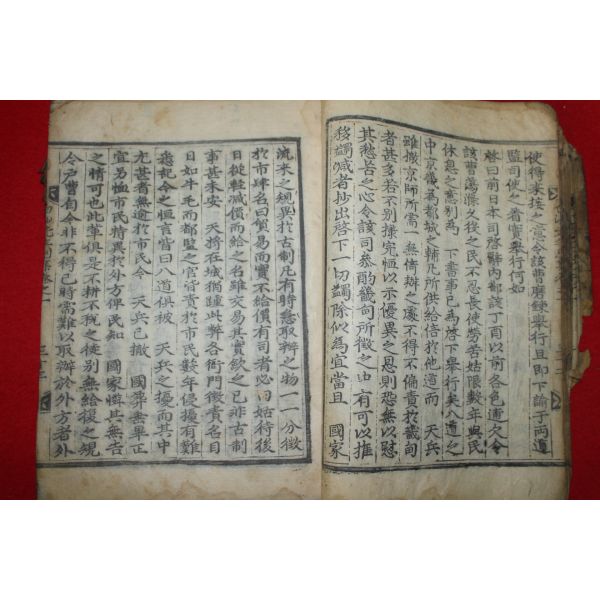 使得來接之意令該曹磨鍊舉行且卽下諭于兩道
監司使之着實舉行何如
啓曰前日本司啓辭內都該丁酉以前各色逋欠令
該曹蕩滌久後之民不忍長使勞苦姑限數年與民
休息之意別爲 下書事已爲啓下舉行矣八道之
中京畿爲都城之輔凡所供給倍於他道而 天兵
雖撤京師所需一無倚辦之處不得不偏責於畿甸
者甚多若不別採完恤以示優異之恩則恐無以慰
其愁苦之心令該司叅酌畿甸所徵之中有可以推
移蠲減者抄出啓下一切蠲除似爲宜當且 國家
流來之規異於古制凡有時急取辦之物一一分徵
於市肆名曰貿易而實不給價有司者必曰姑待後
日從輕減價而給之名雖交易其實歛之已非古制
事甚未安 天將在城猶踵此弊各衙門徵責名目
有如牛毛而都監之官皆責於市民數年侵擾有難
悉記今之恒言皆曰八道俱被 天兵之擾而其中
尤甚者無逾於市民今 天兵已撤 國葬亦畢正
宜另恤市民特異於外方俾民知 國家憐其無告
之情可也此輩俱是不耕不稅之徒別無給復之規
令戶曹自今非不得已時需難以取辦於外方者外